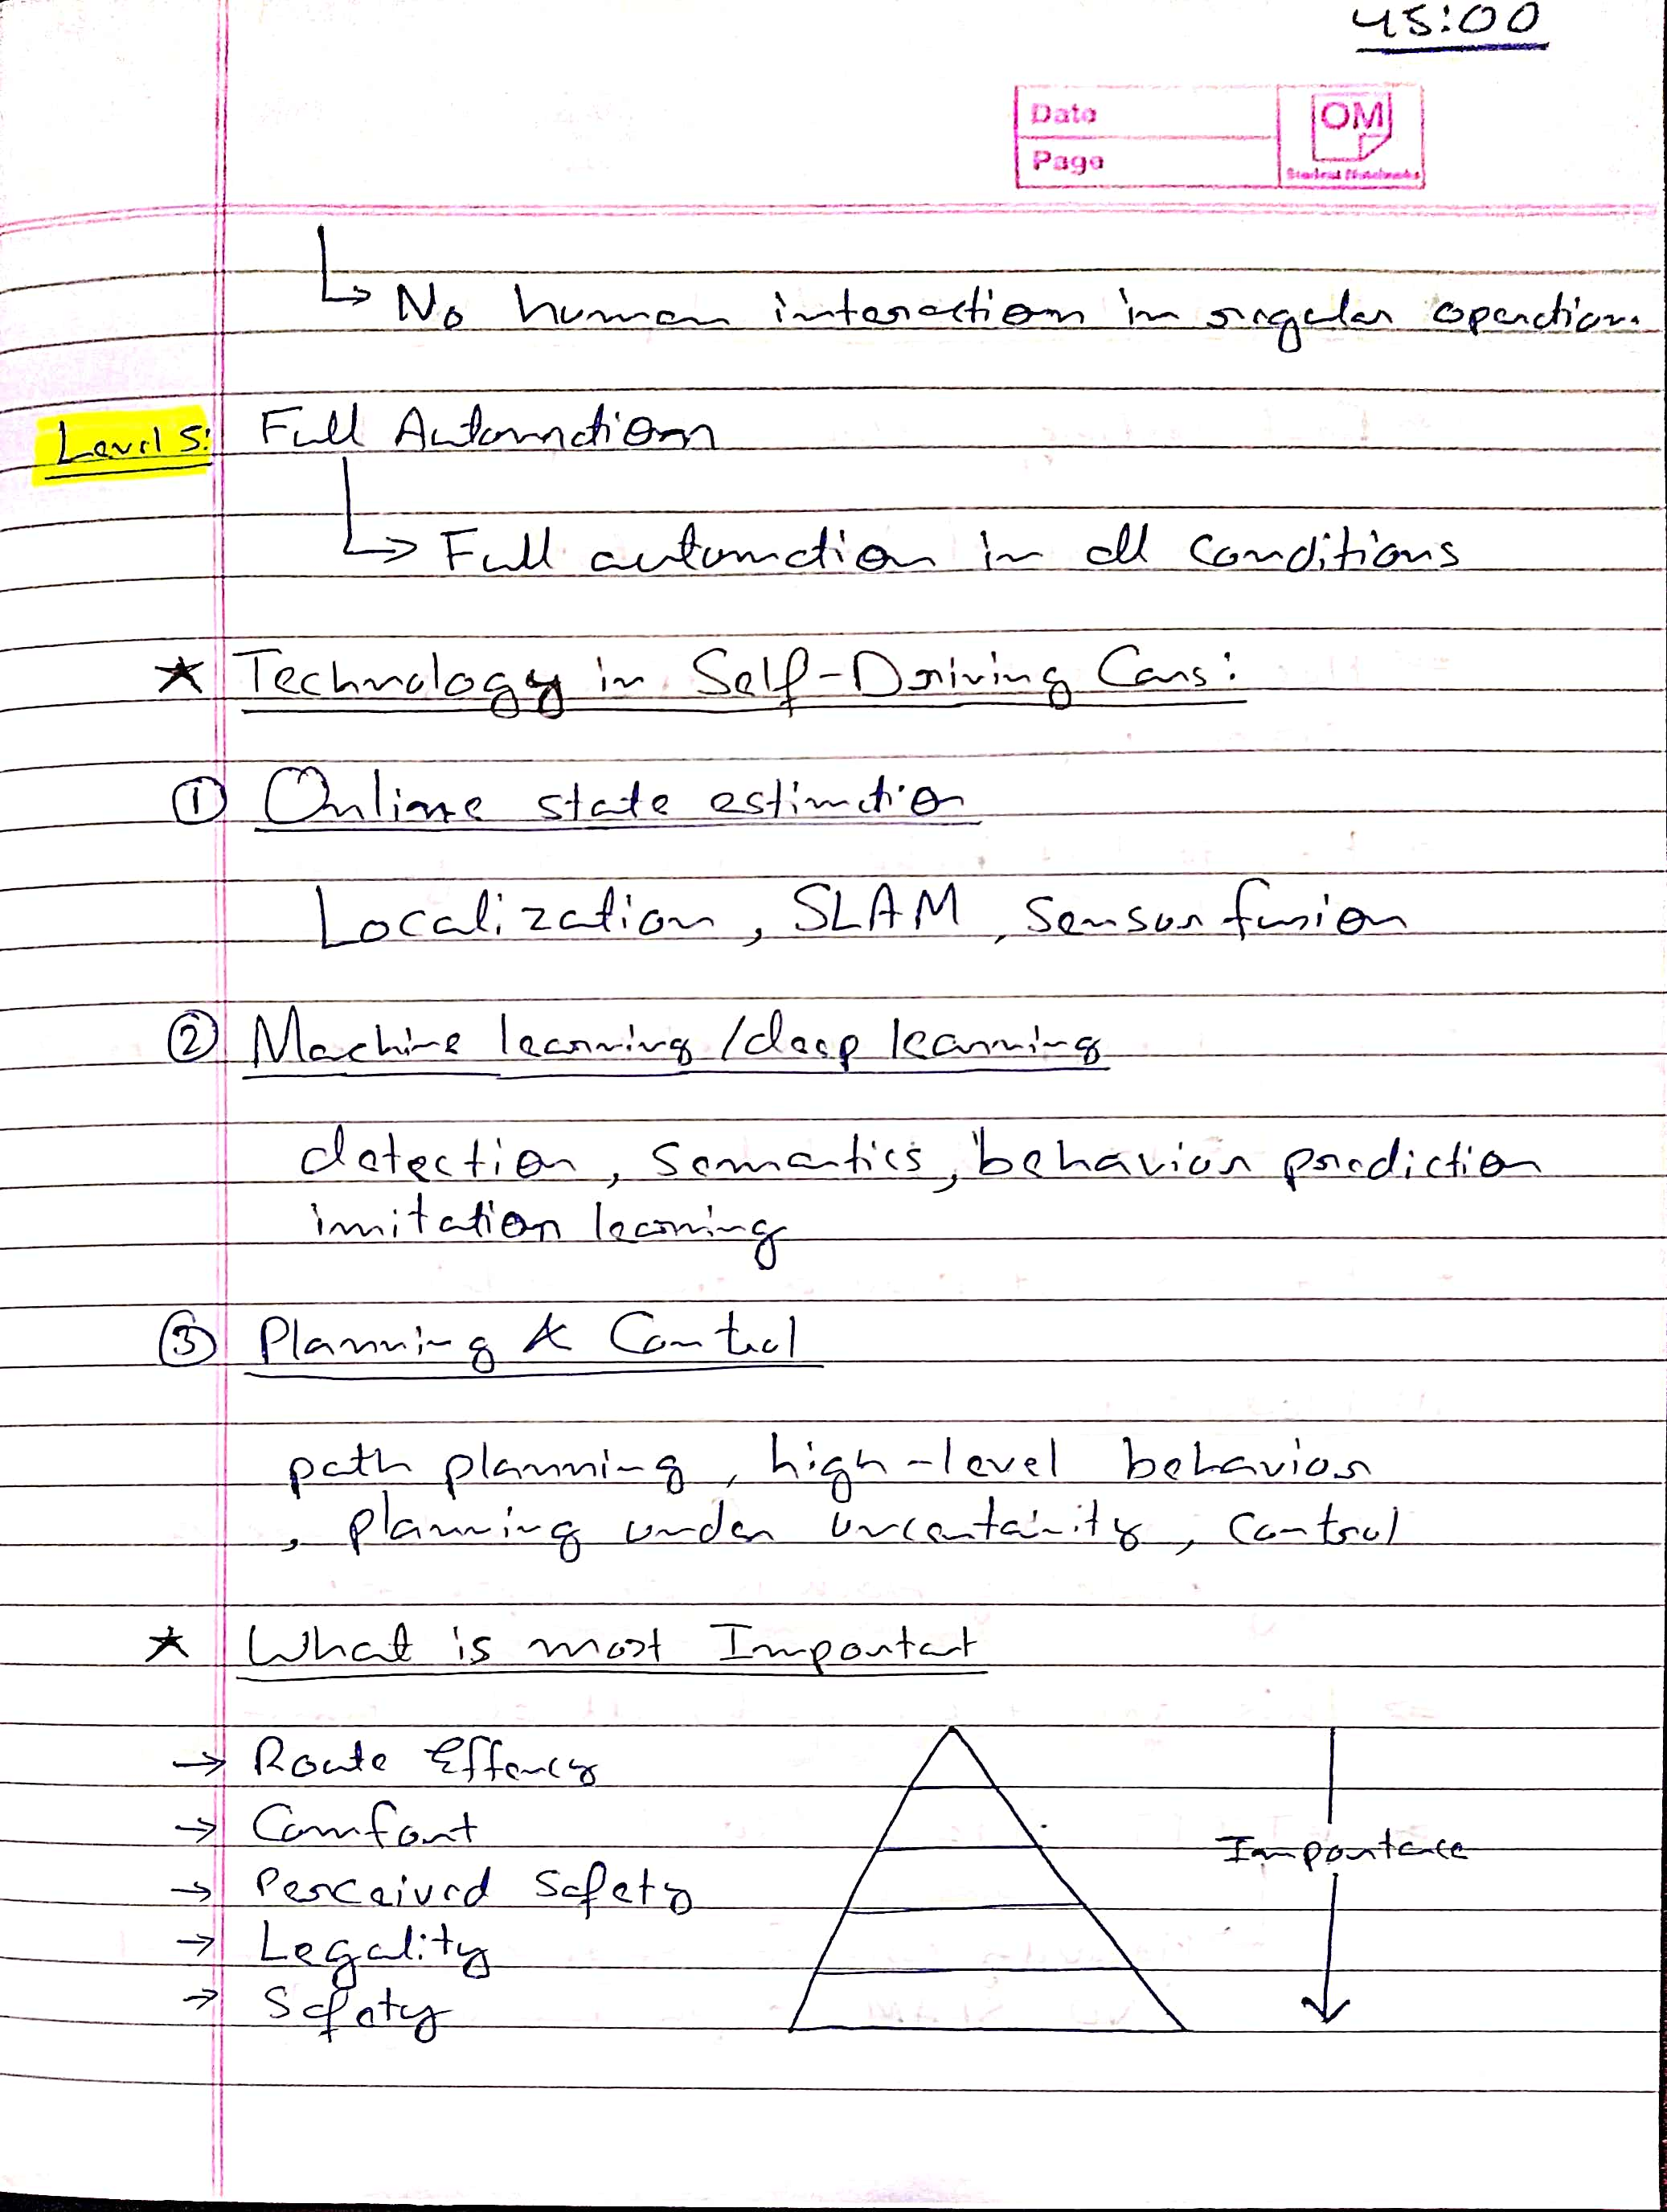 45:00
Date
Page
OM
Student Notebooks
No human interaction in regular operation.
Level 5: Full Automation
Full automation in all conditions
★ Technology in Self-Driving Cars:
① Online state estimation
Localization, SLAM, Sensor fusion
② Machine learning /deep learning
detection, semantics, behavior prediction
imitation learning
③ Planning & Control
path planning, high-level behavior
, planning under uncertainity, control
★ What is most Important
→ Route Effency
→ Comfort
→ Perceived Safety
→ Legality
→ Safety
Importance